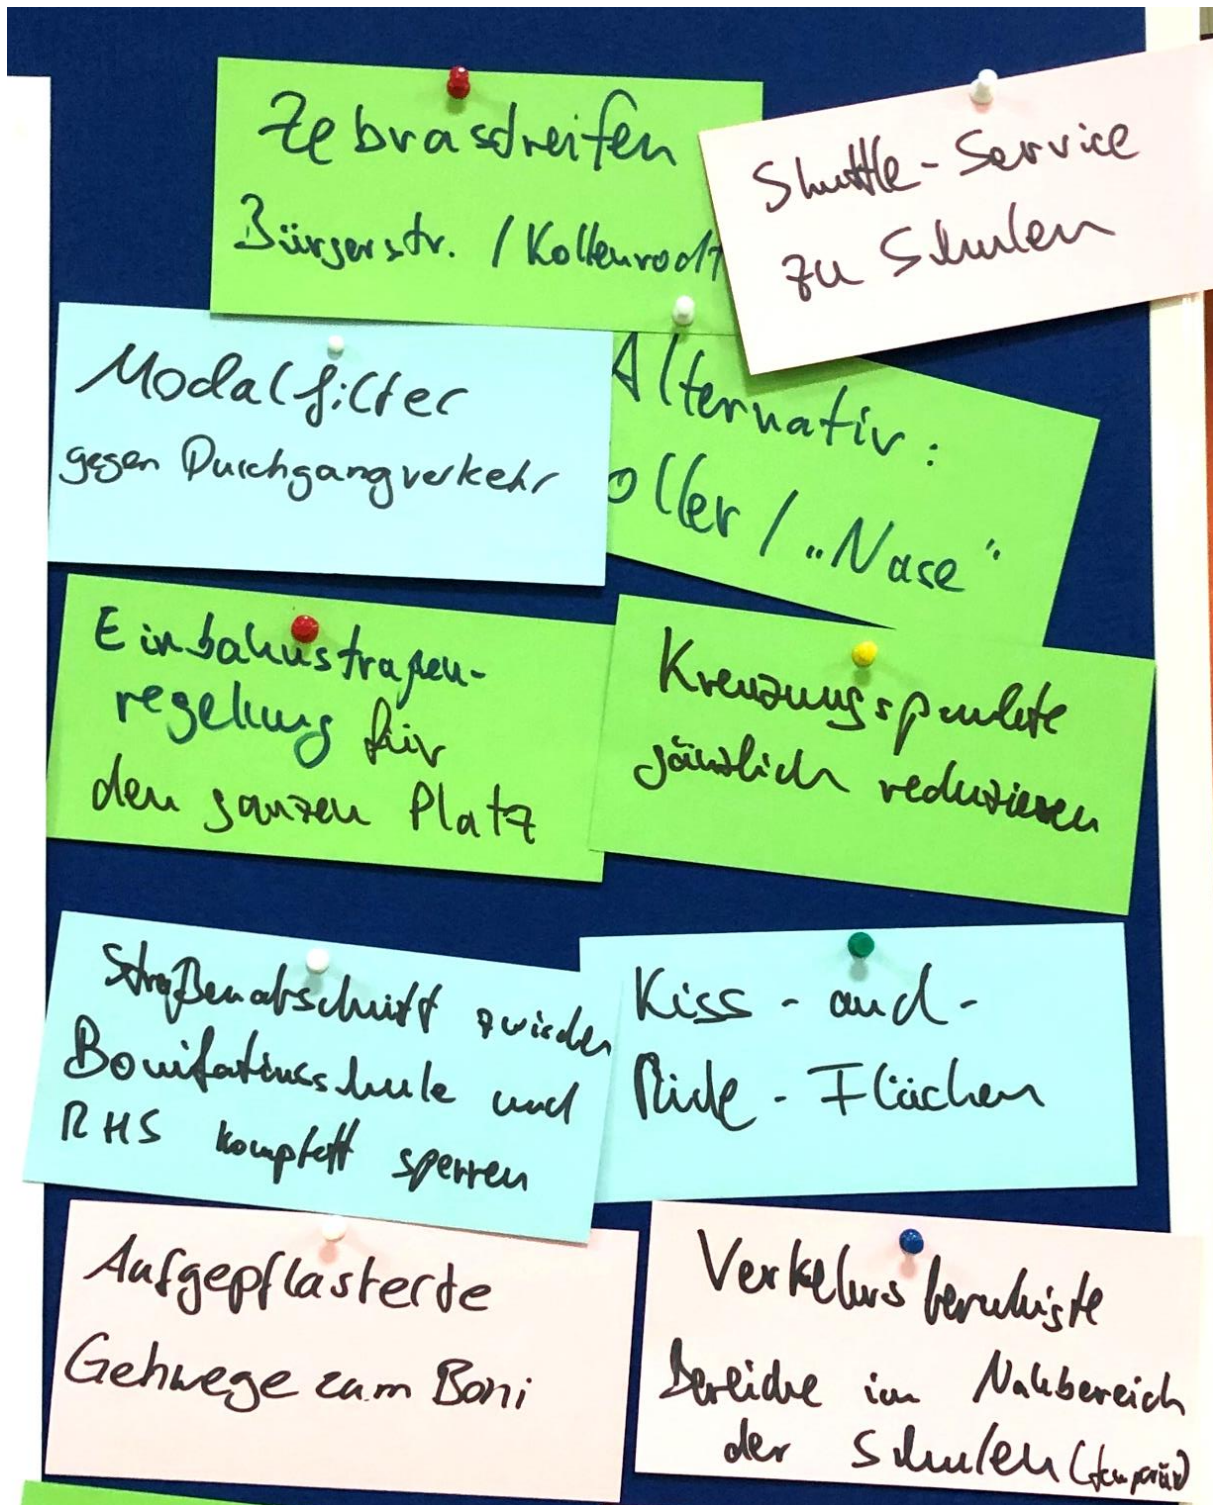 Zebrastreifen
Bürgerstr. / Kollenrodt
Shuttle-Service
zu Schulen
Modalfilter
gegen Durchgangverkehr
Alternativ:
oller / „Nase“
Einbahnstraßen-
regelung für
den ganzen Platz
Kreuzungspunkte
gänzlich reduzieren
Straßenabschnitt zwischen
Bonifatiusschule und
RHS komplett sperren
Kiss-and-
Ride-Flächen
Aufgepflasterte
Gehwege zum Boni
Verkehrsberuhigte
Bereiche im Nahbereich
der Schulen (temporär)